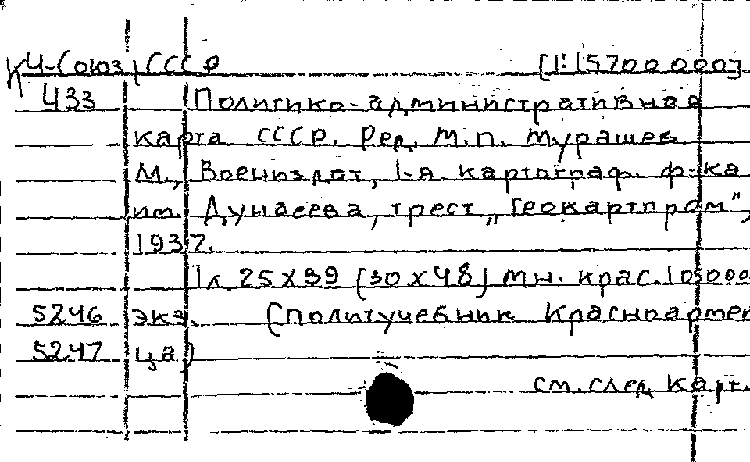 К Ч-Союз СССР [1:15700 000]
433 Политико-административная
карта СССР. Ред. М.П. Мурашев
М., Воениздат, 1-я картограф. ф-ка
им. Дунаева, трест „Геокартпром",
1937.
1л. 25х39 (30х48) мн. крас. 105000
5246 экз. (Политучебник Красноармей
5247 ца)
см. след. карт.